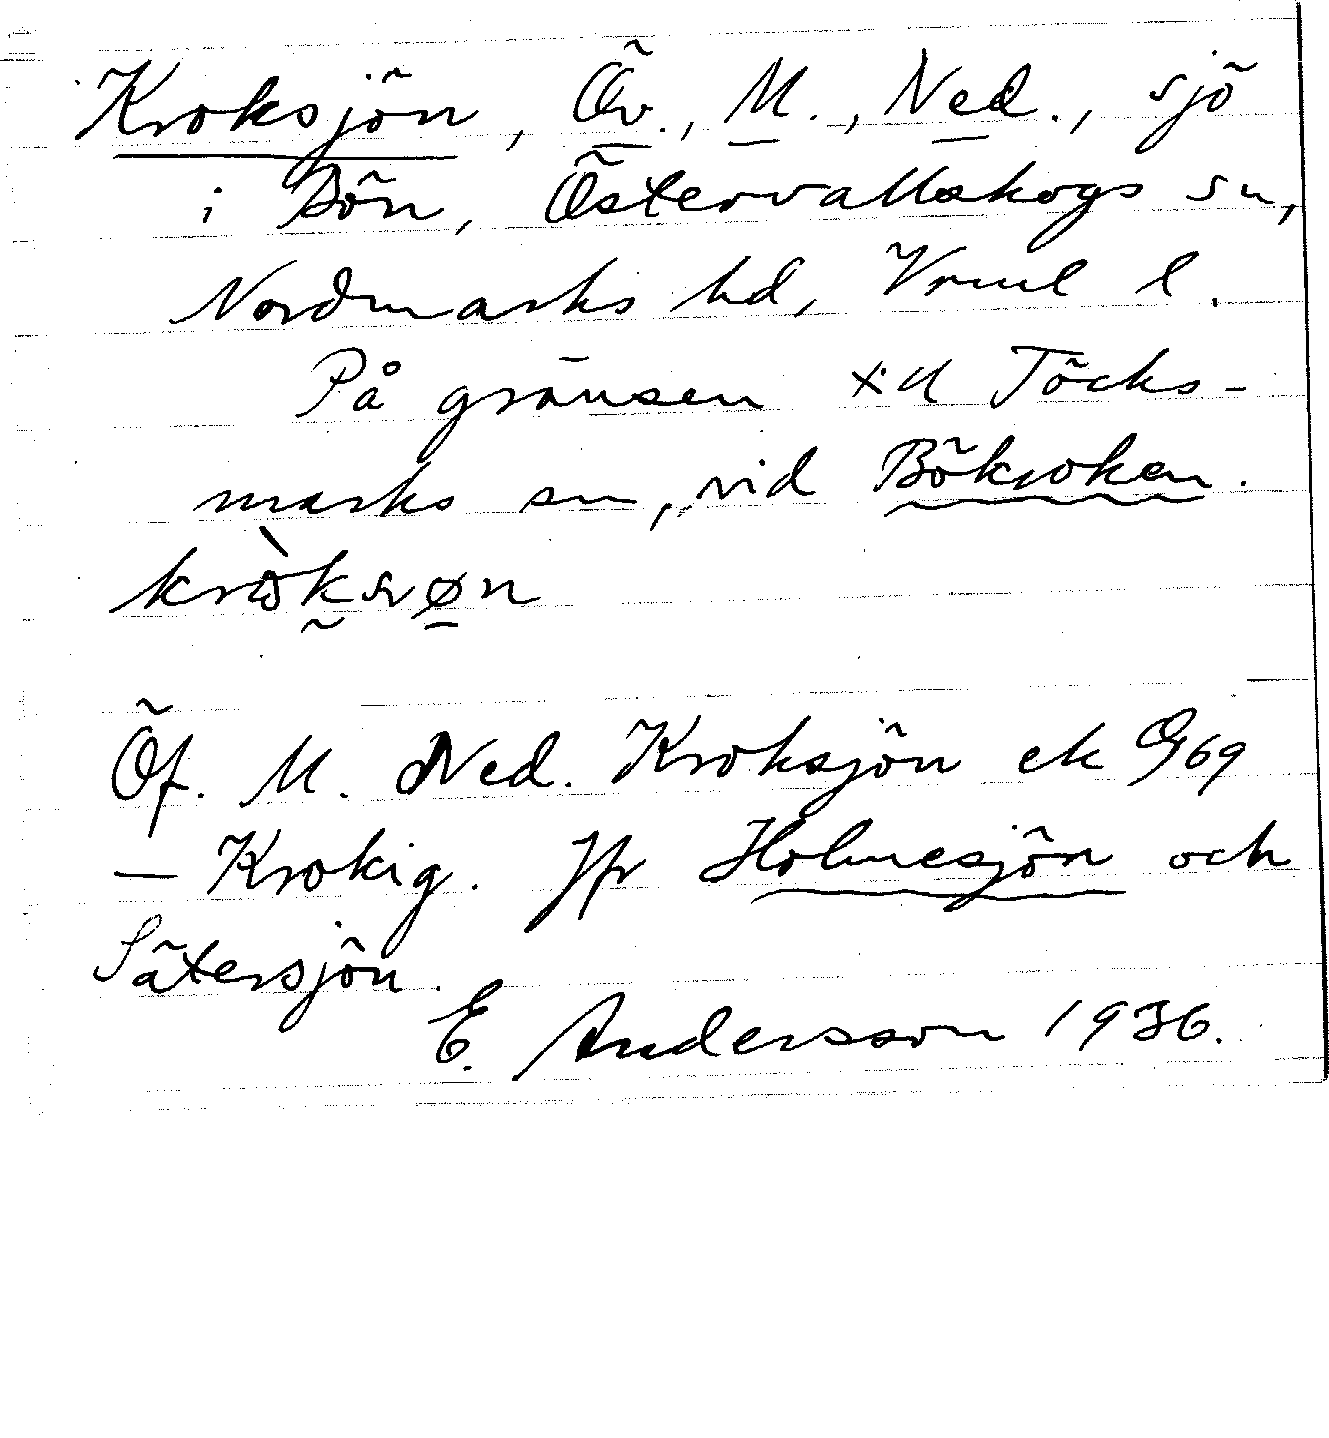 Kroksjön, Öv., M., Ned., sjö
i Bön, Östervallskogs sn,
Nordmarks hd, Vrml l.
På gränsen t. Töcks-
marks sn, vid Bökroken.
Öf. M. Ned. Kroksjön ek G69
— Krokig. Jfr Holmesjön och
Sätersjön.
E. Andersson 1936.